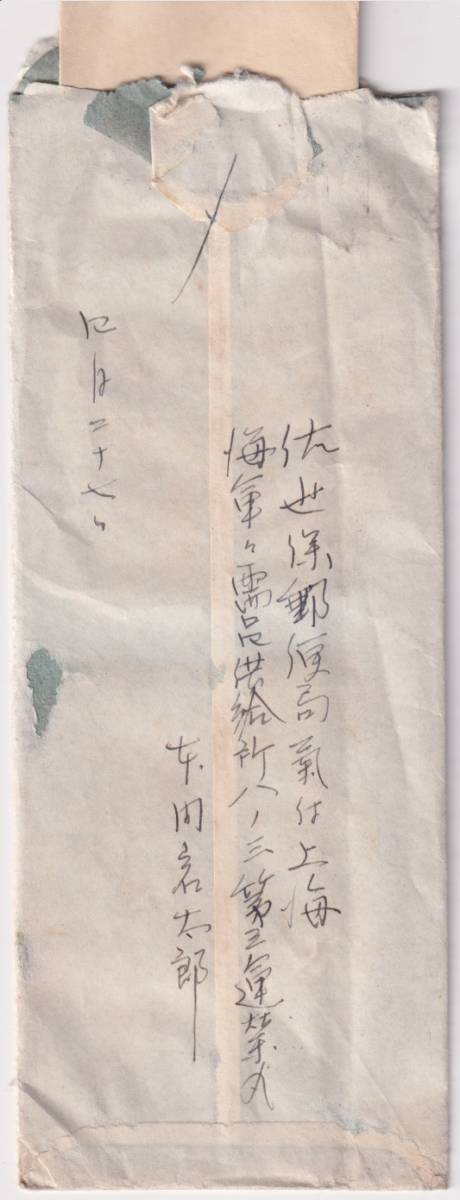 〆
佐世保郵便局氣付上海
海軍々需品供給所ハノ三第三運榮丸
本間岩太郎
四月二十七日